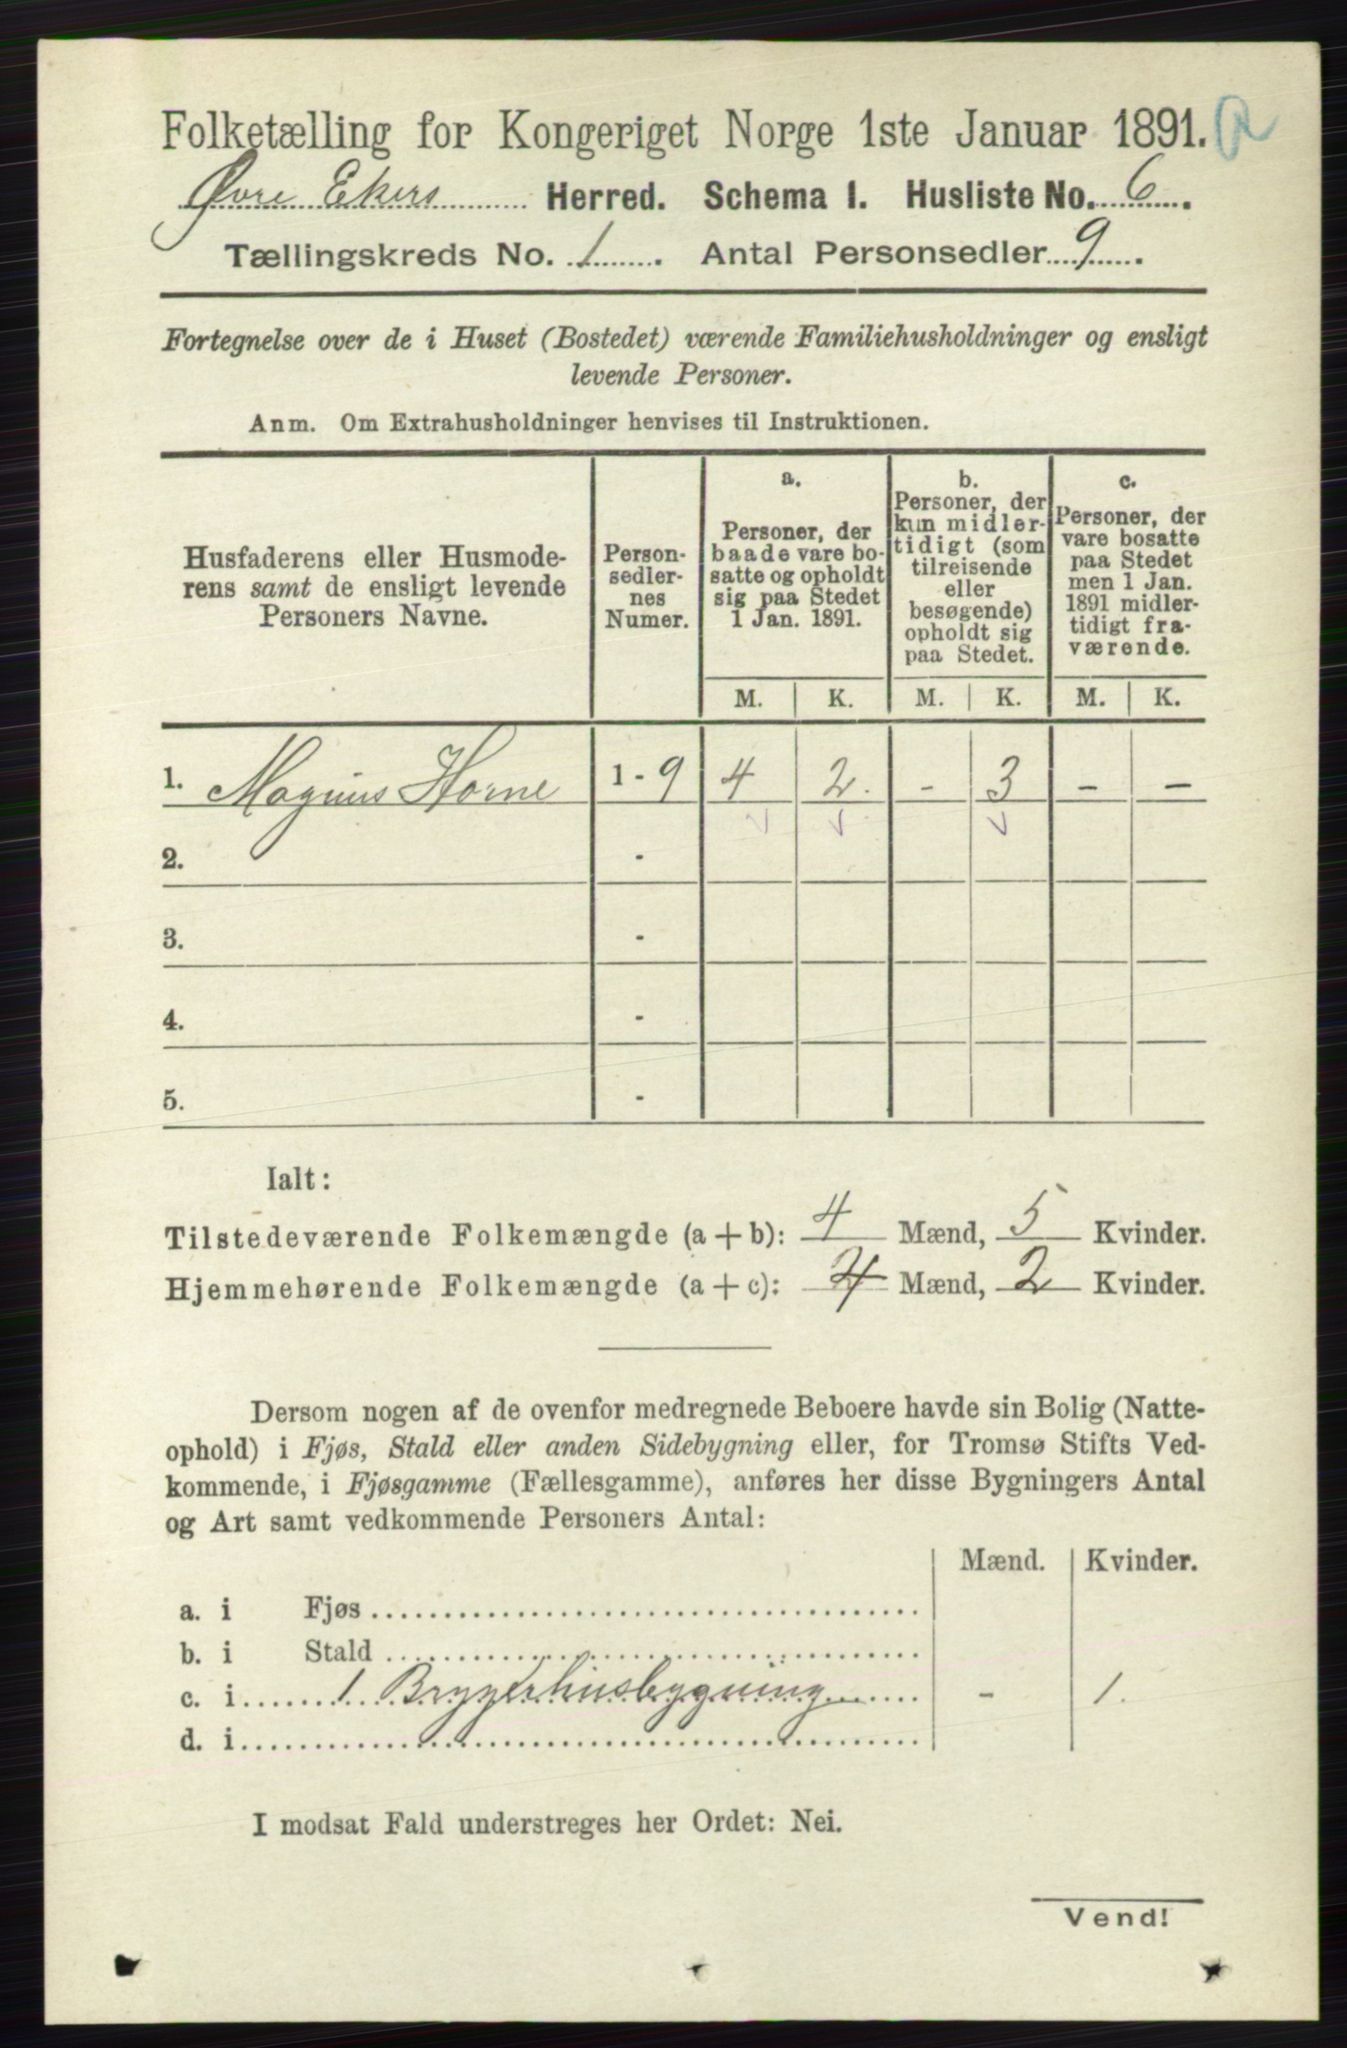 Folketælling for Kongeriget Norge 1ste Januar 1891.
Øvre Ekers Herred. Schema I. Husliste No. 6.
Tællingskreds No. 1. Antal Personsedler 9.
Fortegnelse over de i Huset (Bostedet) værende Familiehusholdninger og ensligt
levende Personer.
Anm. Om Extrahusholdninger henvises til Instruktionen.
Husfaderens eller Husmode-
rens samt de ensligt levende
Personers Navne.
Person-
sedler-
nes
Numer.
a.
Personer, der
baade vare bo-
satte og opholdt
sig paa Stedet
1 Jan. 1891.
b.
Personer, der
kun midler-
tidigt (som
tilreisende
eller
besøgende)
opholdt sig
paa Stedet.
c.
Personer, der
vare bosatte
paa Stedet
men 1 Jan.
1891 midler-
tidigt fra-
værende.
M. K. M. K. M. K.
1. Magnus Horne 1 - 9 4 2. - 3 - -
2. -
3. -
4. -
5. -
Ialt:
Tilstedeværende Folkemængde (a + b): 4 Mænd, 5 Kvinder.
Hjemmehørende Folkemængde (a + c): 4 Mænd, 2 Kvinder.
Dersom nogen af de ovenfor medregnede Beboere havde sin Bolig (Natte-
ophold) i Fjøs, Stald eller anden Sidebygning eller, for Tromsø Stifts Ved-
kommende, i Fjøsgamme (Fællesgamme), anføres her disse Bygningers Antal
og Art samt vedkommende Personers Antal:
Mænd. Kvinder.
a. i Fjøs
b. i Stald
c. i 1 Bryggerhusbygning - 1.
d. i
I modsat Fald understreges her Ordet: Nei.
Vend!